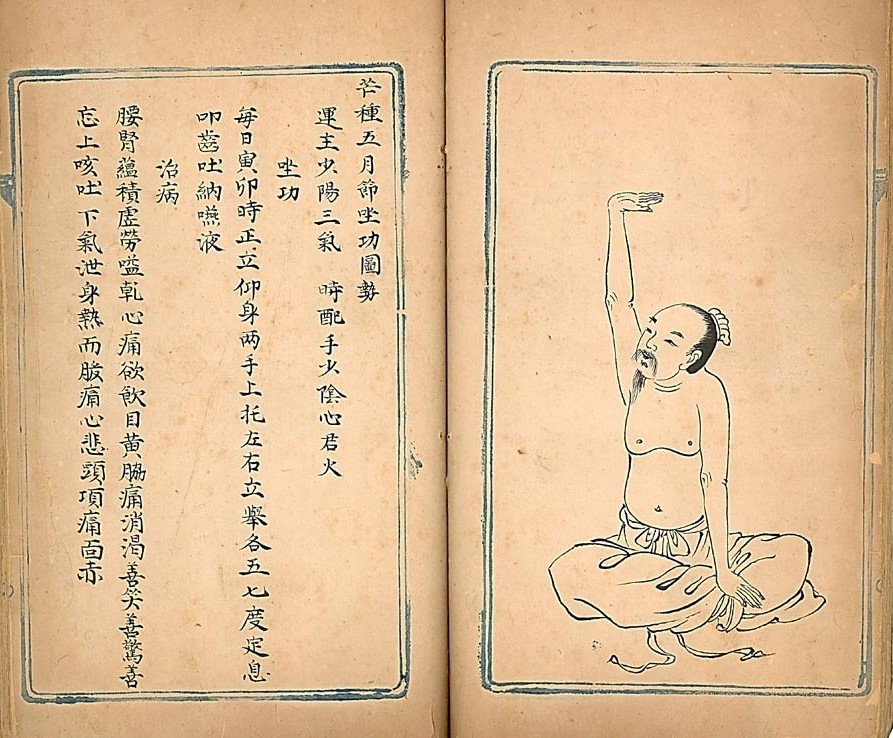 芒種五月節坐功圖勢
運主少陽三氣 時配手少陰心君火
坐功
每日寅卯時正立仰身两手上托左右立舉各五七度定息
叩齒吐納嚥液
治病
腰腎蘊積虛勞嗌乾心痛欲飲目黄脇痛消渴善笑善驚善
忘上咳吐下氣泄身熱而股痛心悲頭項痛面赤